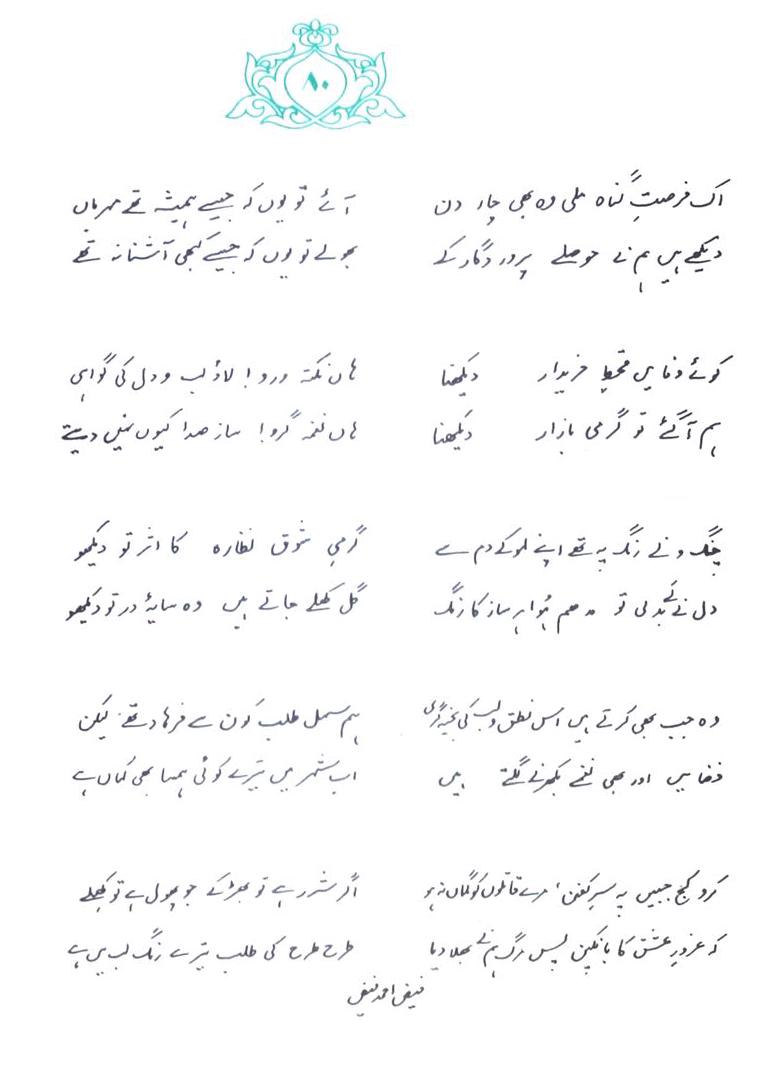 ۸۰
اک فرصتِ گناہ ملی وہ بھی چار دن
دیکھے ہیں ہم نے حوصلے پروردگار کے
آئے تو یوں کہ جیسے ہمیشہ تھے مہرباں
بھولے تو یوں کہ جیسے کبھی آشنا نہ تھے
کوئے وفا میں خریدار دیکھنا
ہم آ گئے تو گرمی بازار دیکھنا
ہاں نکتہ ورو! لاؤ لب و دل کی گواہی
ہاں نغمہ گرو! ساز صدا کیوں نہیں دیتے
چنگ و نے رنگ پہ تھے اپنے لہو کے دم سے
دل نے لے بدلی تو مدھم ہوا ہر ساز کا رنگ
گرمیِ شوق نظارہ کا اثر تو دیکھو
گل کھلے جاتے ہیں وہ سایۂ در تو دیکھو
وہ جب بھی کرتے ہیں اس نطق و لب کی بخیہ گری
فضا میں اور بھی نغمے بکھرنے لگتے ہیں
ہم سہل طلب کون سے فرہاد تھے لیکن
اب شہر میں تیرے کوئی ہم سا بھی کہاں ہے
کرو کج جبیں پہ سرِ کفن، مرے قاتلوں کو گماں نہ ہو
کہ غرورِ عشق کا بانکپن پسِ مرگ ہم نے بھلا دیا
اگر شرر ہے تو بھڑکے جو پھول ہے تو کھلے
طرح طرح کی طلب تیرے رنگِ لب میں ہے
فیض احمد فیض